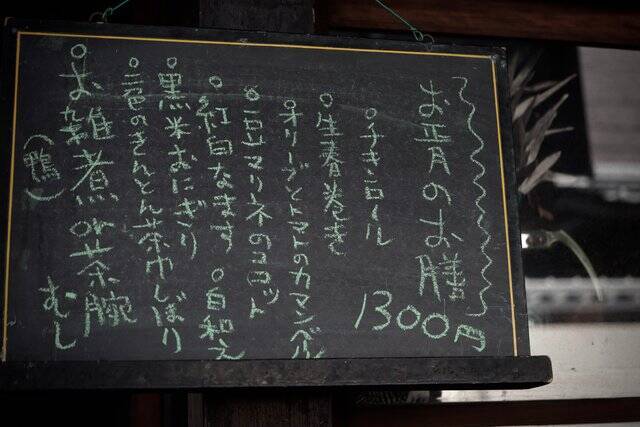 お昼のお膳
1300円
○チキンロール
○生春巻き
○オリーブとトマトのカマンベール
○豆マリネのココット
○紅白なます ○白和え
○黒米おにぎり
○二色のきんとん茶巾しぼり
○お雑煮or茶腕むし
(鴨)